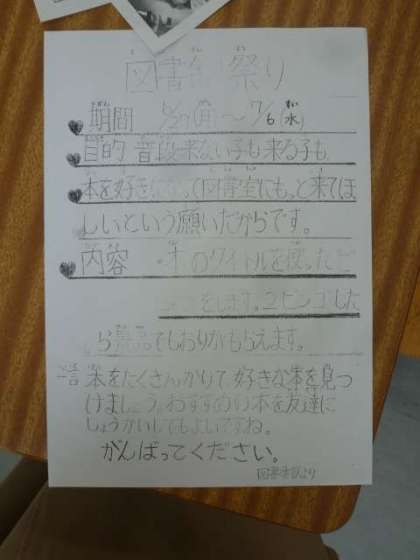 図書館祭り
期間 6/27(月)〜7/6(水)
目的 普段来ない子も来る子も
本を好きになって図書室にもっと来てほ
しいという願いだからです。
内容 本のタイトルを使った
をします。2ビンゴした
ら景品でしおりがもらえます。
一言 本をたくさんかりて、好きな本を見つ
けましょう。おすすめの本を友達に
しょうかいしてもよいですね。
がんばってください。
図書委員より